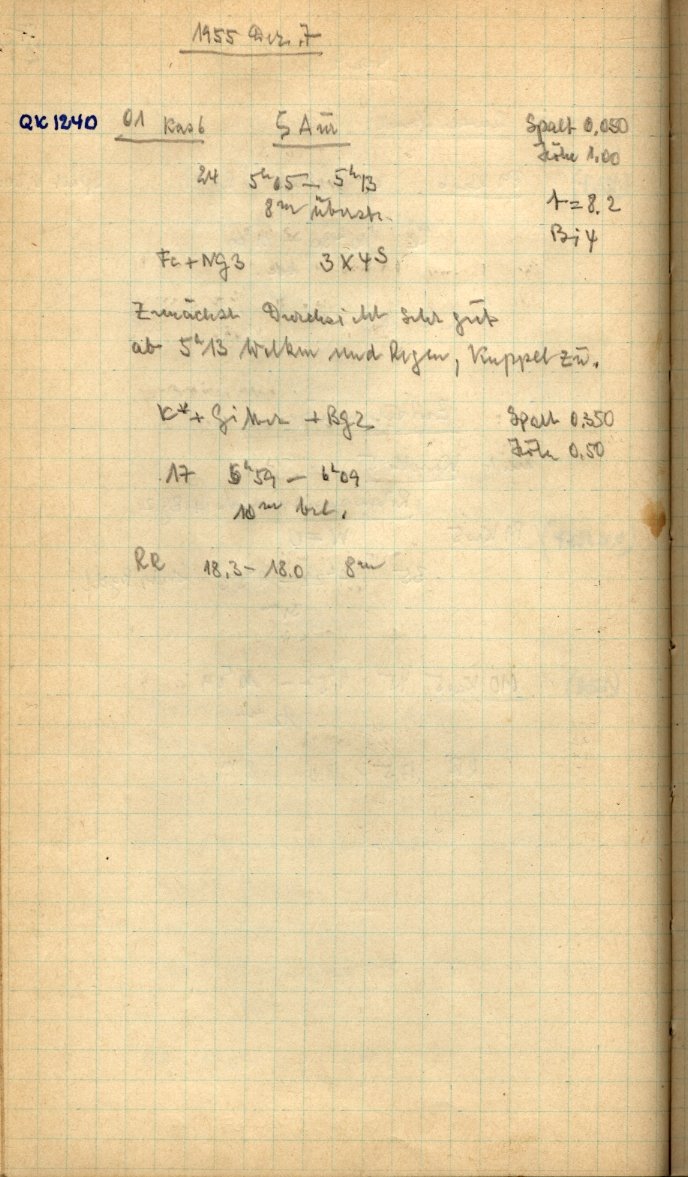 1955 Dez. 7
QK 1240 01 Kas 6 ζ Aur Spalt 0,050
Höhe 1,00
24 5ʰ05 – 5ʰ13
8ᵐ überst. t = 8,2
B; 4
Fe + NG3 3 x 4ˢ
Zunächst Durchsicht sehr gut
ab 5ʰ13 Wolken und Regen, Kuppel zu.
K* + Gitter + BG2 Spalt 0,350
Höhe 0,50
17 5ʰ59 – 6ʰ09
10ᵐ bel.
RR 18,3 – 18,0 8ᵐ